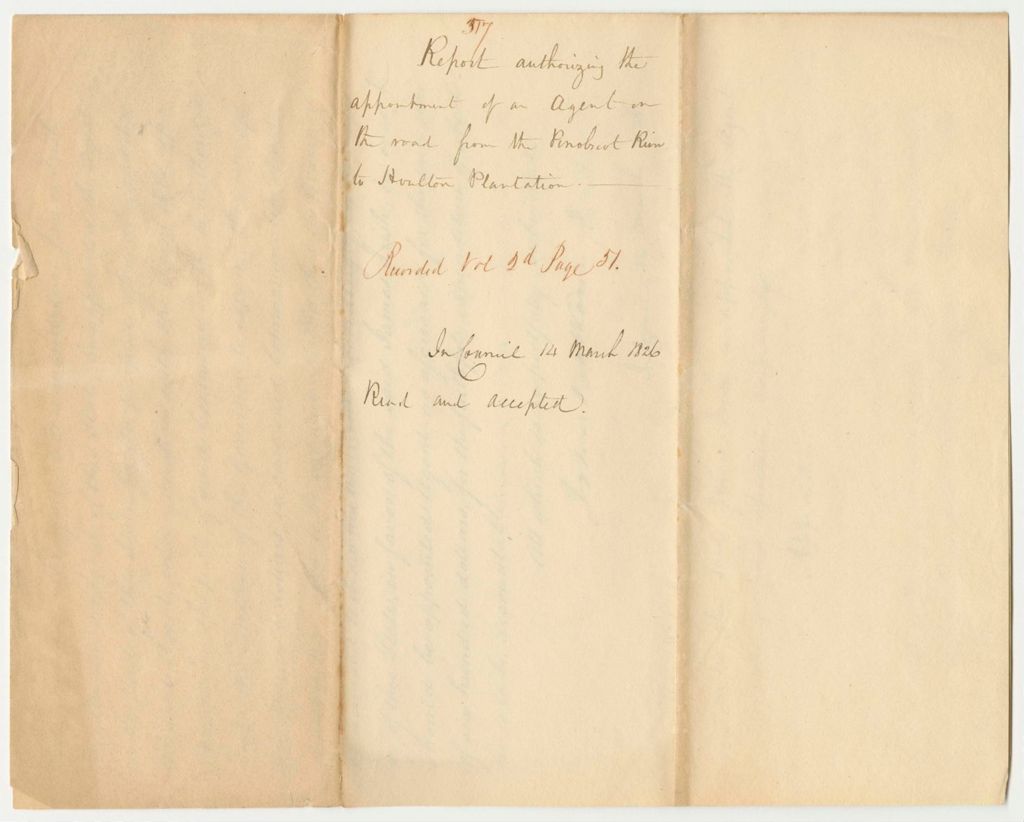 317
Report authorizing the
appointment of an Agent on
the road from the Penobscot River
to Houlton Plantation.
Recorded Vol 2d Page 51.
In Council 14 March 1826
Read and accepted.